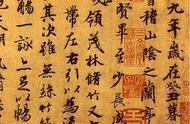 九年歲在癸丑暮
稽山陰之蘭亭
賢畢至少長咸
領茂林脩竹又
帶左右引以為
其次雖無絲竹
觴一詠亦足以暢